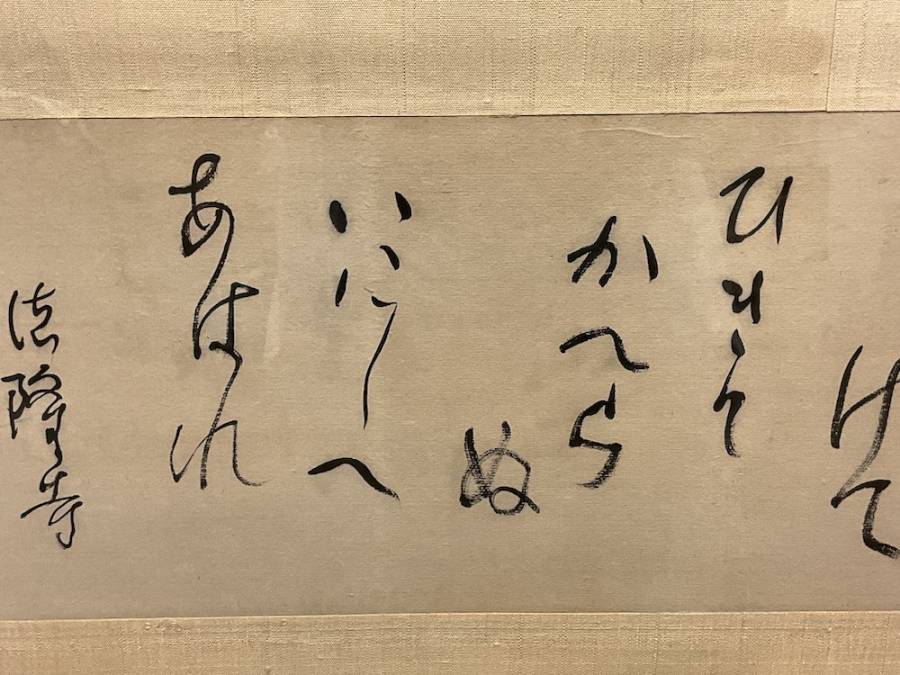 けて
かへらぬ
いにしへ
あはれ
法隆寺